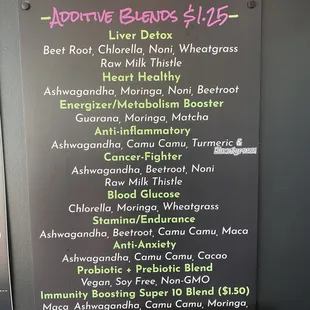 -ADDITIVE BLENDS $1.25-
Liver Detox
Beet Root, Chlorella, Noni, Wheatgrass
Raw Milk Thistle
Heart Healthy
Ashwagandha, Moringa, Noni, Beetroot
Energizer/Metabolism Booster
Guarana, Moringa, Matcha
Anti-inflammatory
Ashwagandha, Camu Camu, Turmeric &
Cancer-Fighter
Ashwagandha, Beetroot, Noni
Raw Milk Thistle
Blood Glucose
Chlorella, Moringa, Wheatgrass
Stamina/Endurance
Ashwagandha, Beetroot, Camu Camu, Maca
Anti-Anxiety
Ashwagandha, Camu Camu, Cacao
Probiotic + Prebiotic Blend
Vegan, Soy Free, Non-GMO
Immunity Boosting Super 10 Blend ($1.50)
Maca, Ashwagandha, Camu Camu, Moringa,